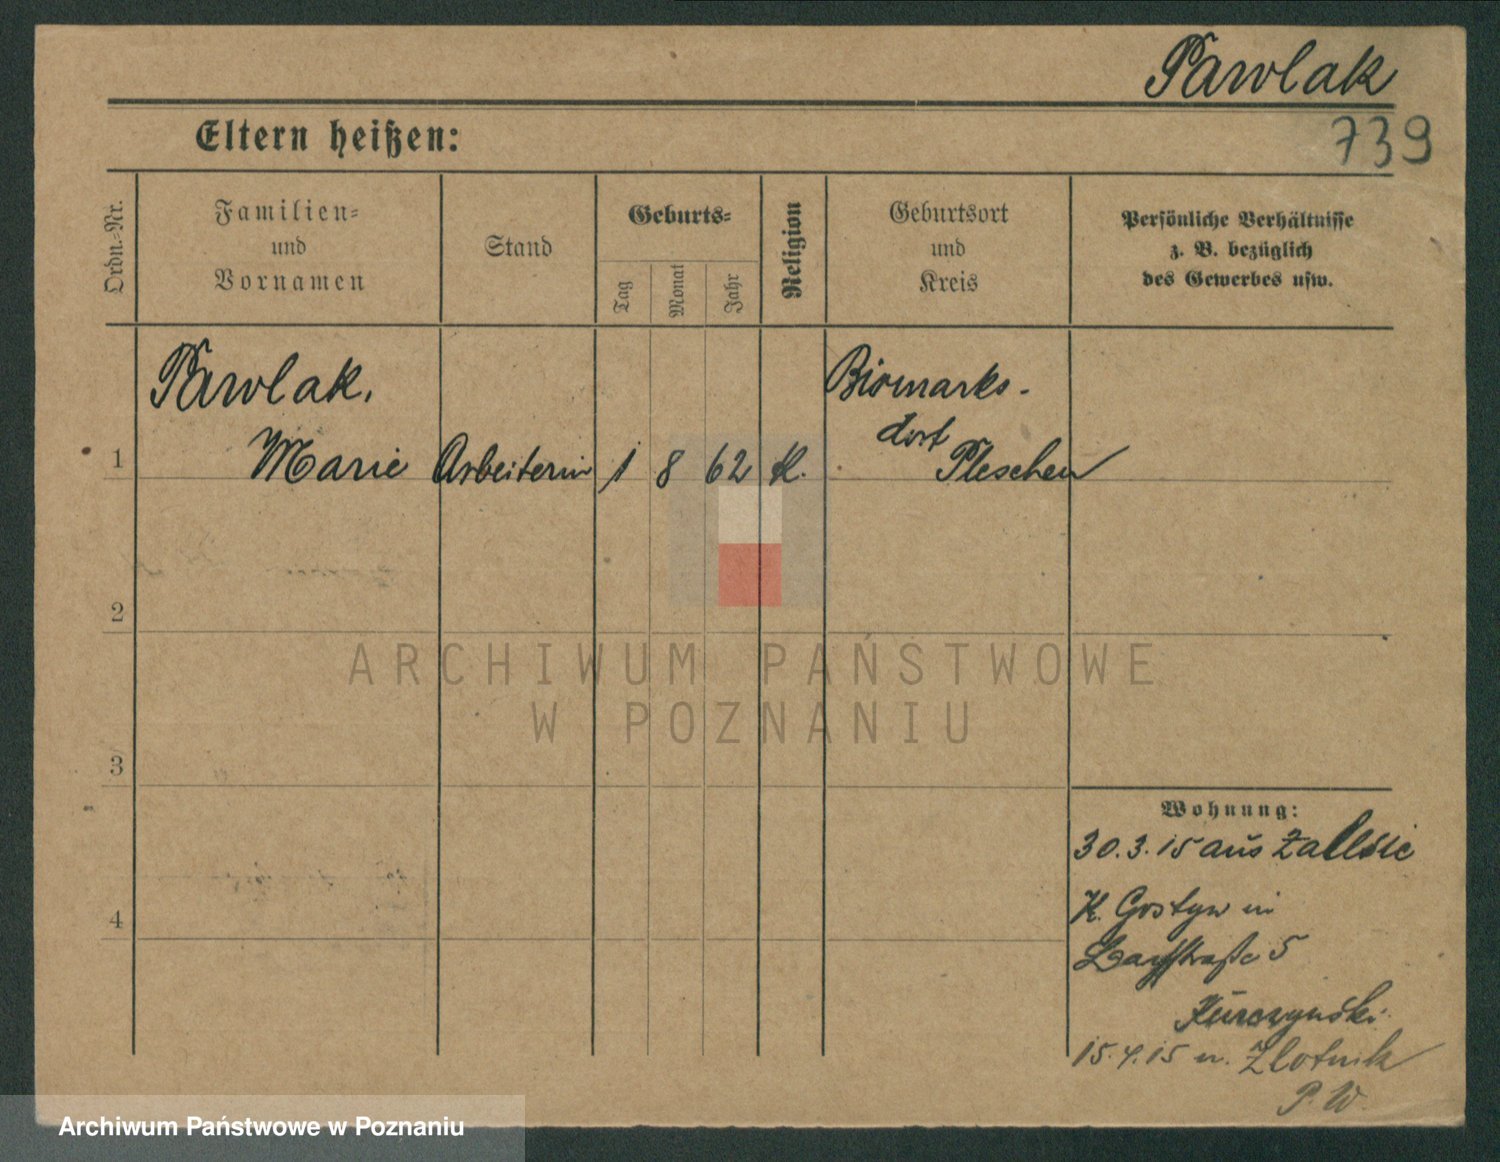 Pawlak
739
Eltern heißen:
Ordn.-Nr.
Familien-
und
Vornamen
Stand
Geburts-
Tag
Monat
Jahr
Religion
Geburtsort
und
Kreis
Persönliche Verhältnisse
z. B. bezüglich
des Gewerbes usw.
Pawlak,
Bismarks-
dorf
1 Marie Arbeiterin 1 8 62 K. Pleschen
2
3
4
Wohnung:
30.3.15 aus Zalesie
K. Gostyn in
5
Kurczynski
15.4.15 n. Zlotnik
P. W.
ARCHIWUM PAŃSTWOWE
W POZNANIU
Archiwum Państwowe w Poznaniu